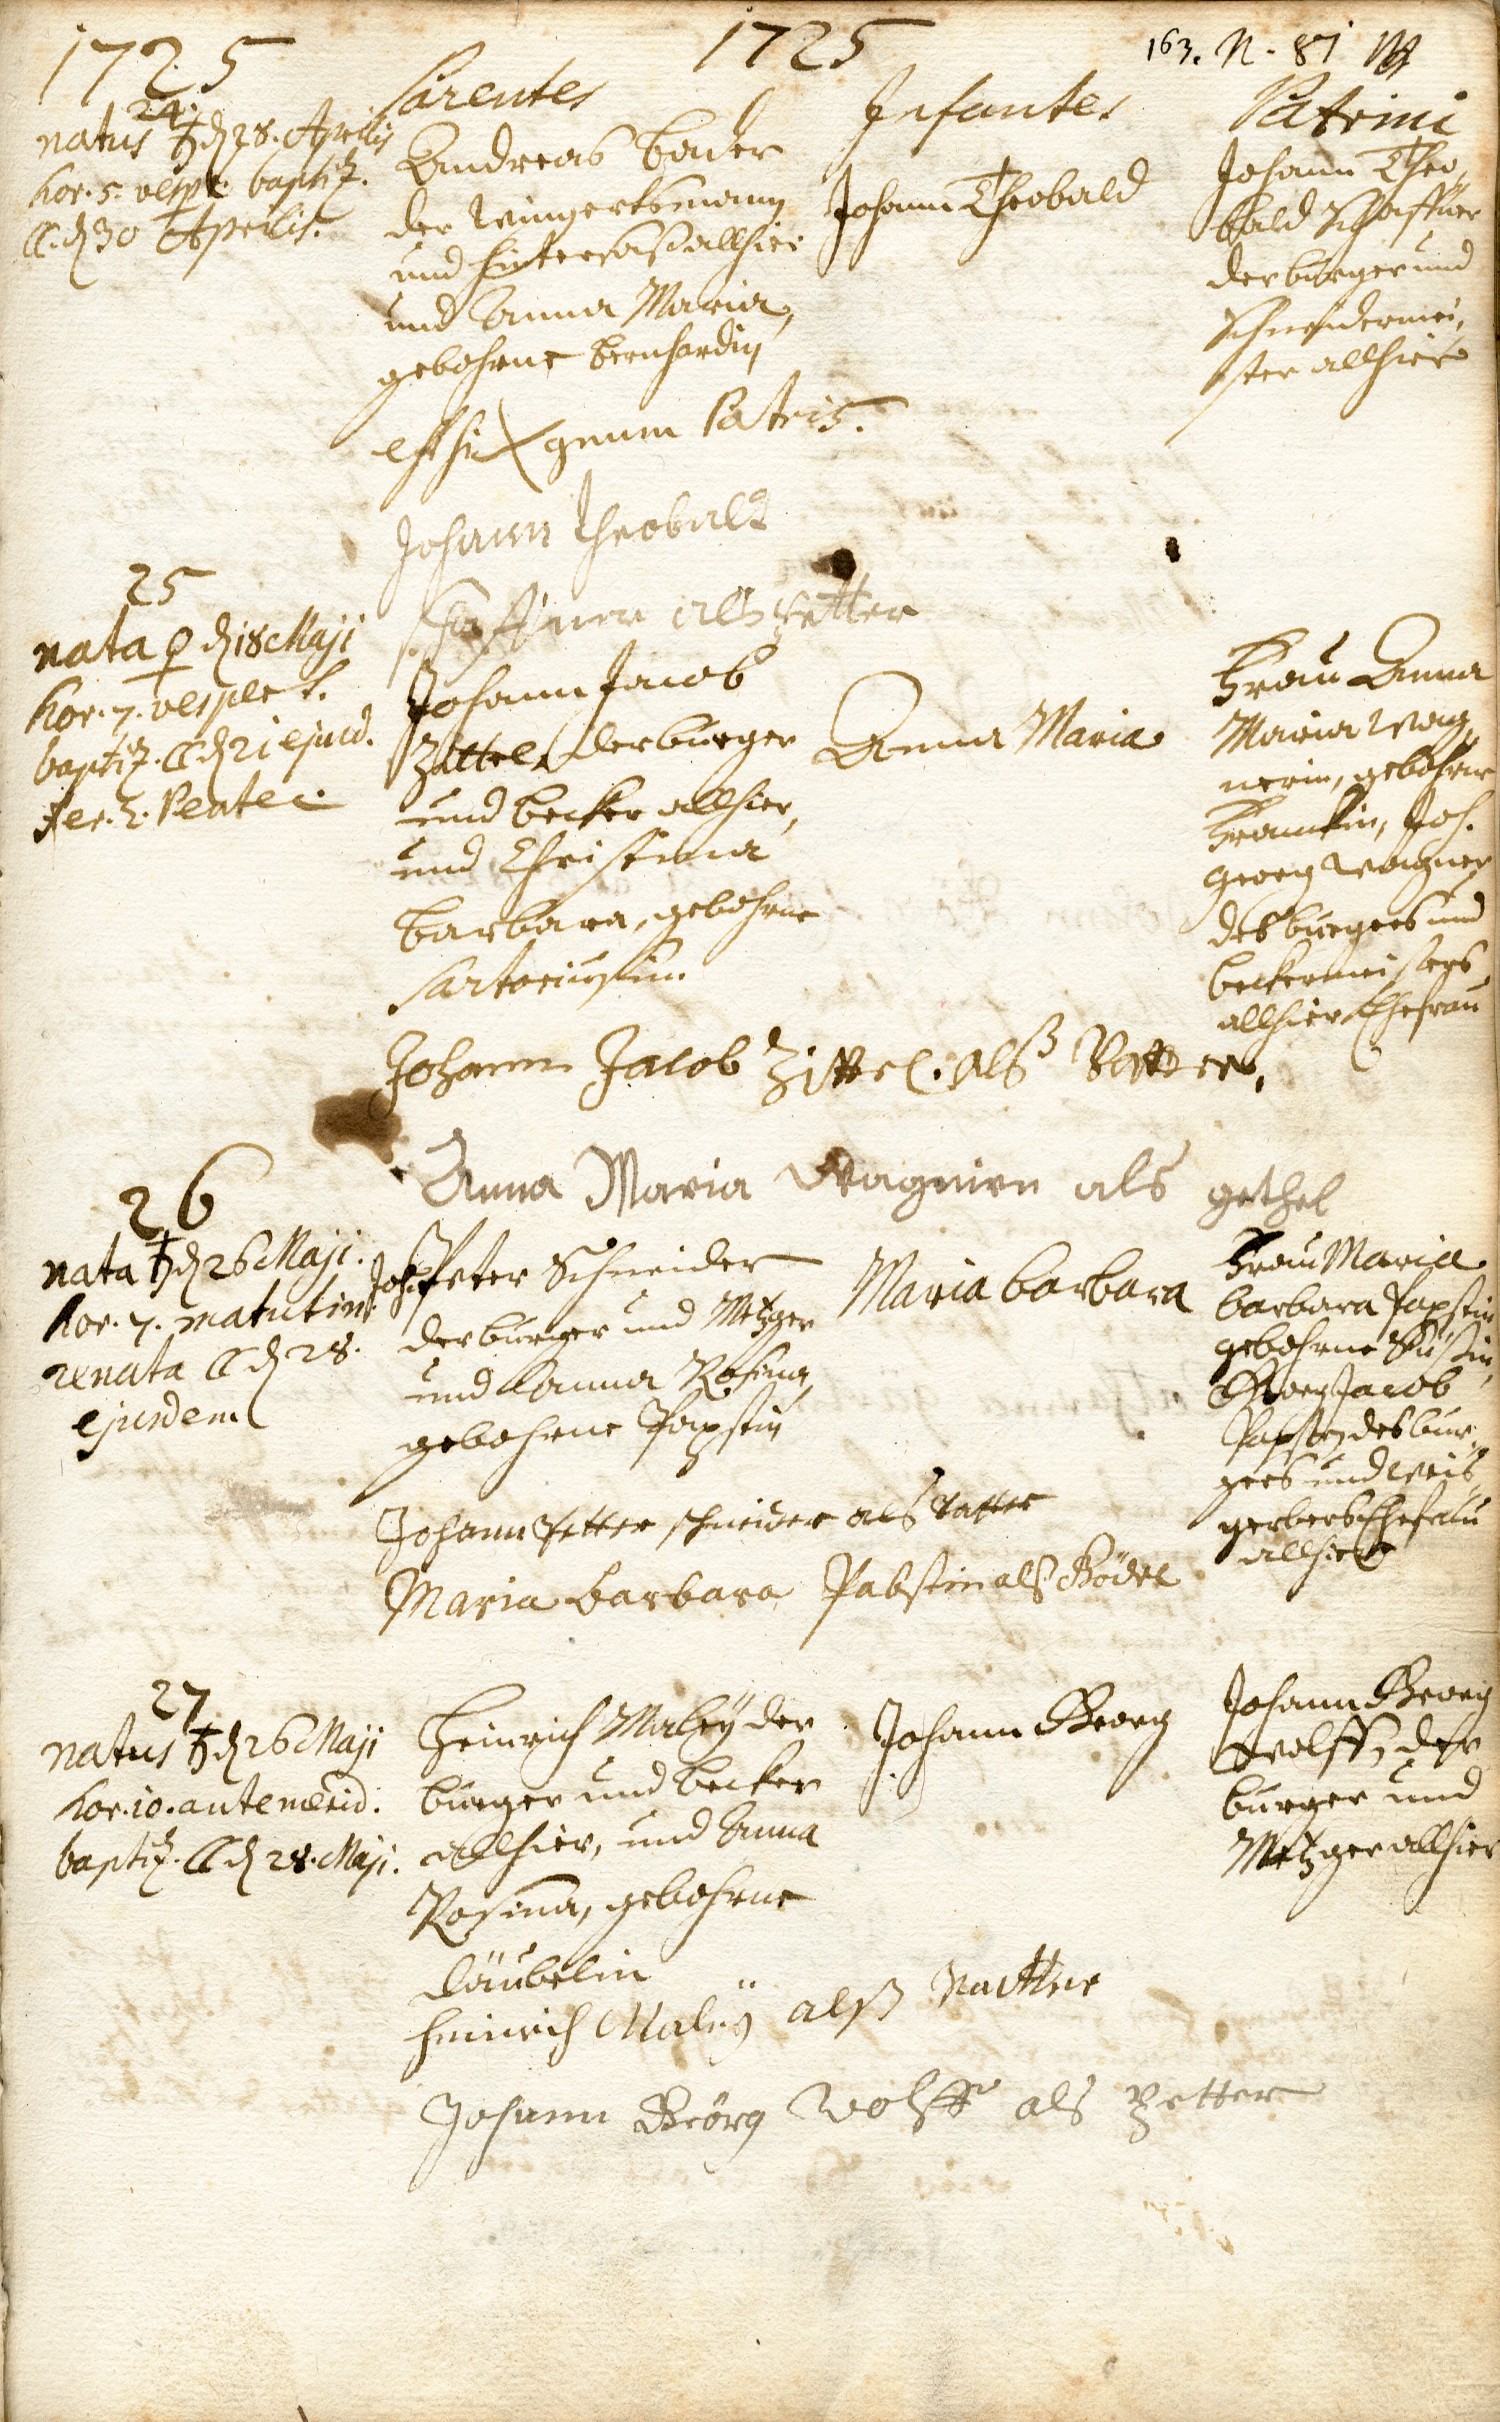 1725
1725
163. N. 87
Parentes
Infantes
Patrini
24.
natus ♄ d 28. Aprilis
hor. 5. vesp. baptiz.
☾. d 30 Aprilis.
Andreas Bader
der Wingertsmann
und hintersaß allhier
und Anna Maria,
gebohrne Bernhardin
Johann Theobald
Johann Theo,
bald Schaffner
der burger und
Schneidermei,
ster allhier
est hic X gnum Patris.
Johann Theobalt
Schaffner als Petter
25
nata ♀ d 18 Maji
hor. 7. vespert.
baptiz. ☾ d 21 ejusd.
fer. 2. Pentec.
Johann Jacob
Zittel, der burger
und becker allhier,
und Christina
Barbara, gebohrne
Sartoriussin.
Anna Maria
Frau Anna
Maria Wag,
nerin, gebohrne
Franckin, Joh.
Georg Wagner
des burgers und
beckermeisters
allhier Ehefrau
Johann Jacob Zittel. alß Vatter,
Anna Maria Wagnirn als gethel
26
nata ♄ d 26 Maji.
hor. 7. matutin.
renata ☾ d 28.
ejusdem
Joh. Peter Schneider
der burger und Metzger
und Anna Rosina,
gebohrne Papstin
Maria Barbara
Frau Maria
Barbara Papstin
gebohrne
Georg Jacob
Papsten des bur,
gers und Weis,
gerbers Ehefrau
allhier
Johann Petter schneider als Vatter
Maria Barbara Pabstin alß Gödel
27
natus ♄ d 26 Maji
hor. 10. antemerid.
baptiz. ☾ d 28. Maji.
Heinrich Maleÿ der
burger und becker
allhier, und Anna
Rosina, gebohrne
Däubelin
Johann Georg
Johann Georg
Wolff, der
burger und
Metzger allhier
Heinrich Maleÿ alß Vatter
Johann Geörg Wolff als Petter